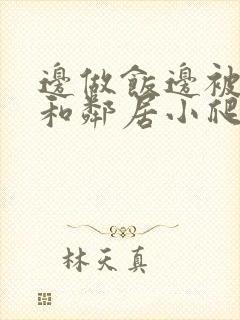 邊做飯邊被
和鄰居小爬
林天真